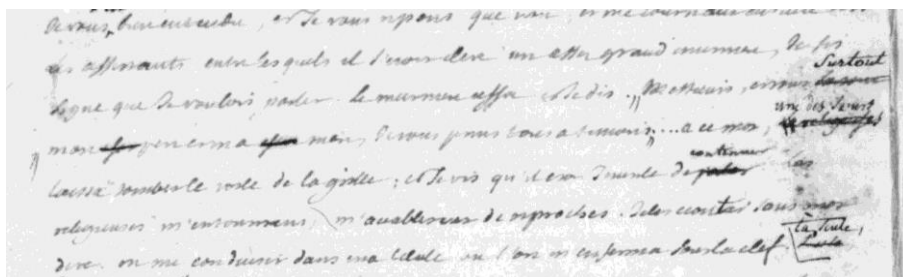 bien entendu, et Je vous repons que non. et me tournant ensuite
les assistants entre lesquels il s'etoit elevé un assez grand murmure, Je fis
signe que Je voulois parler. le murmure cessa et Je dis, „Messieurs, et vous surtout
mon pere et ma mere, Je vous prens tous a temoins;... a ce mot, une des sœurs
laissa tomber le voile de la grille; et Je vis qu'il etoit inutile de continuer les
religieuses m'entourerent, m'accablerent de reproches. Je les ecoutai sans mot
dire. on me conduisit dans ma cellule ou l'on m'enferma sous la clef. la seule,